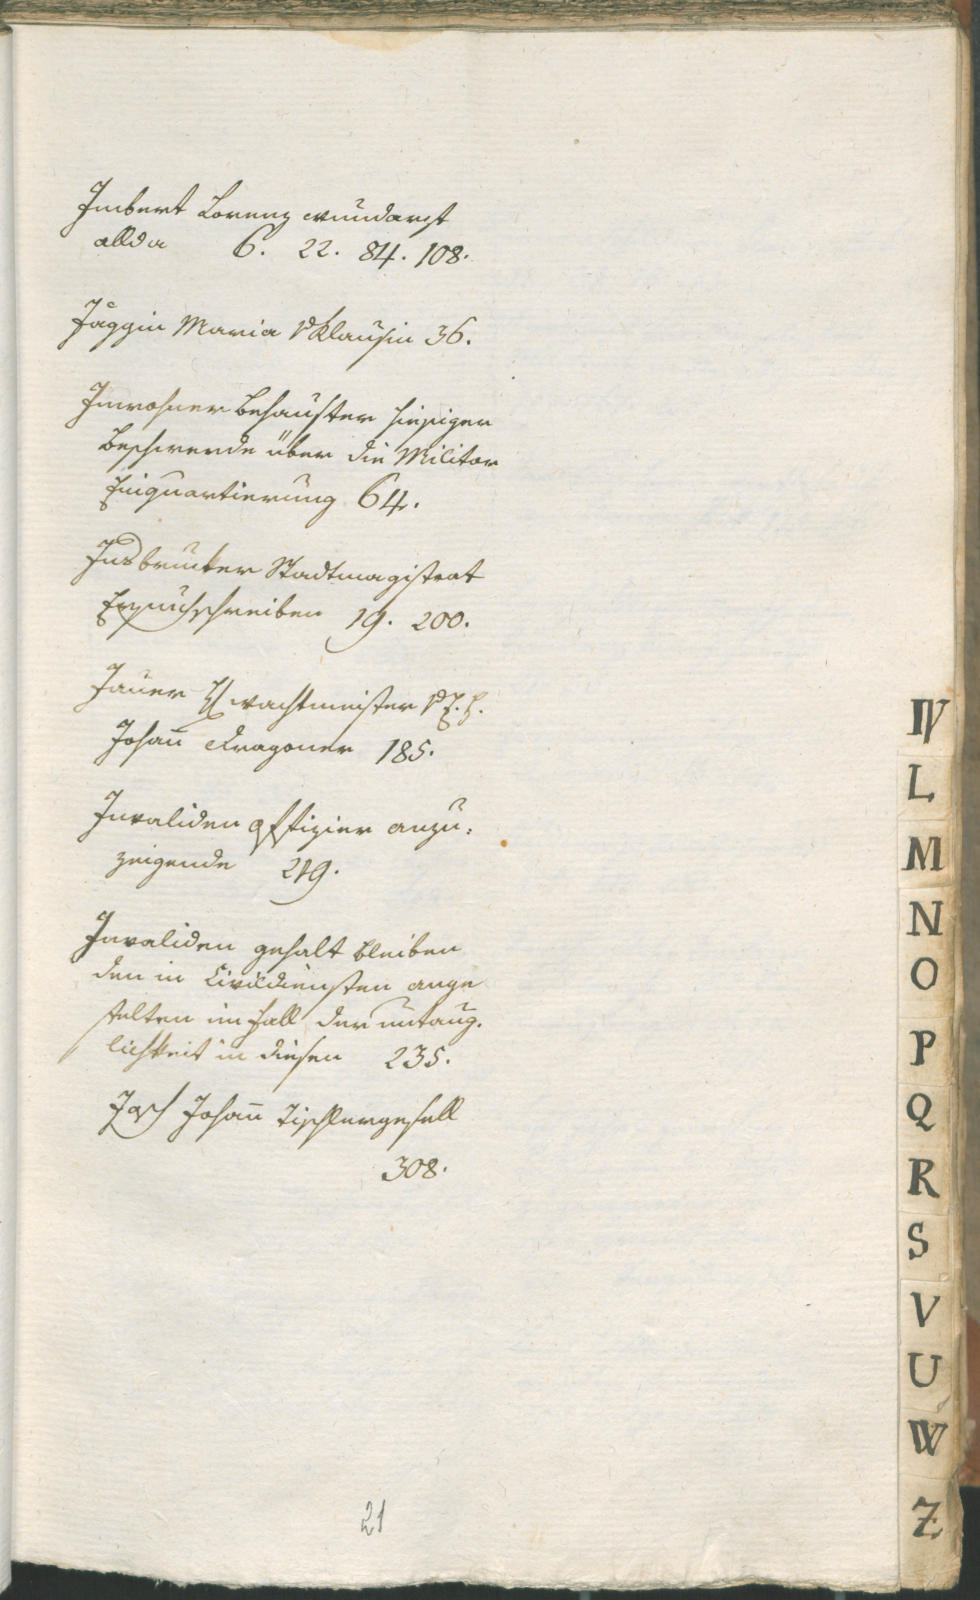 Imbert Lorenz wundarzt
allda 6. 22. 84. 108.
Jäggin Maria Klausin 36.
Inwohner behauster hiesiger
beschwerde über die Militar
Einquartierung 64.
Insbrucker Stadtmagistrat
Ersuchschreiben 19. 200.
Jauer wachtmeister
Johan̄ dragoner 185.
Invaliden offizier anzu:
zeigende 219.
Invaliden gehalt bleiben
den in Civildiensten ange
stelten im fall der untaug.
lichkeit in diesen 235.
Johan̄ Tischlergesell
308.
21
L
M
N
O
P
Q
R
S
V
U
W
Z